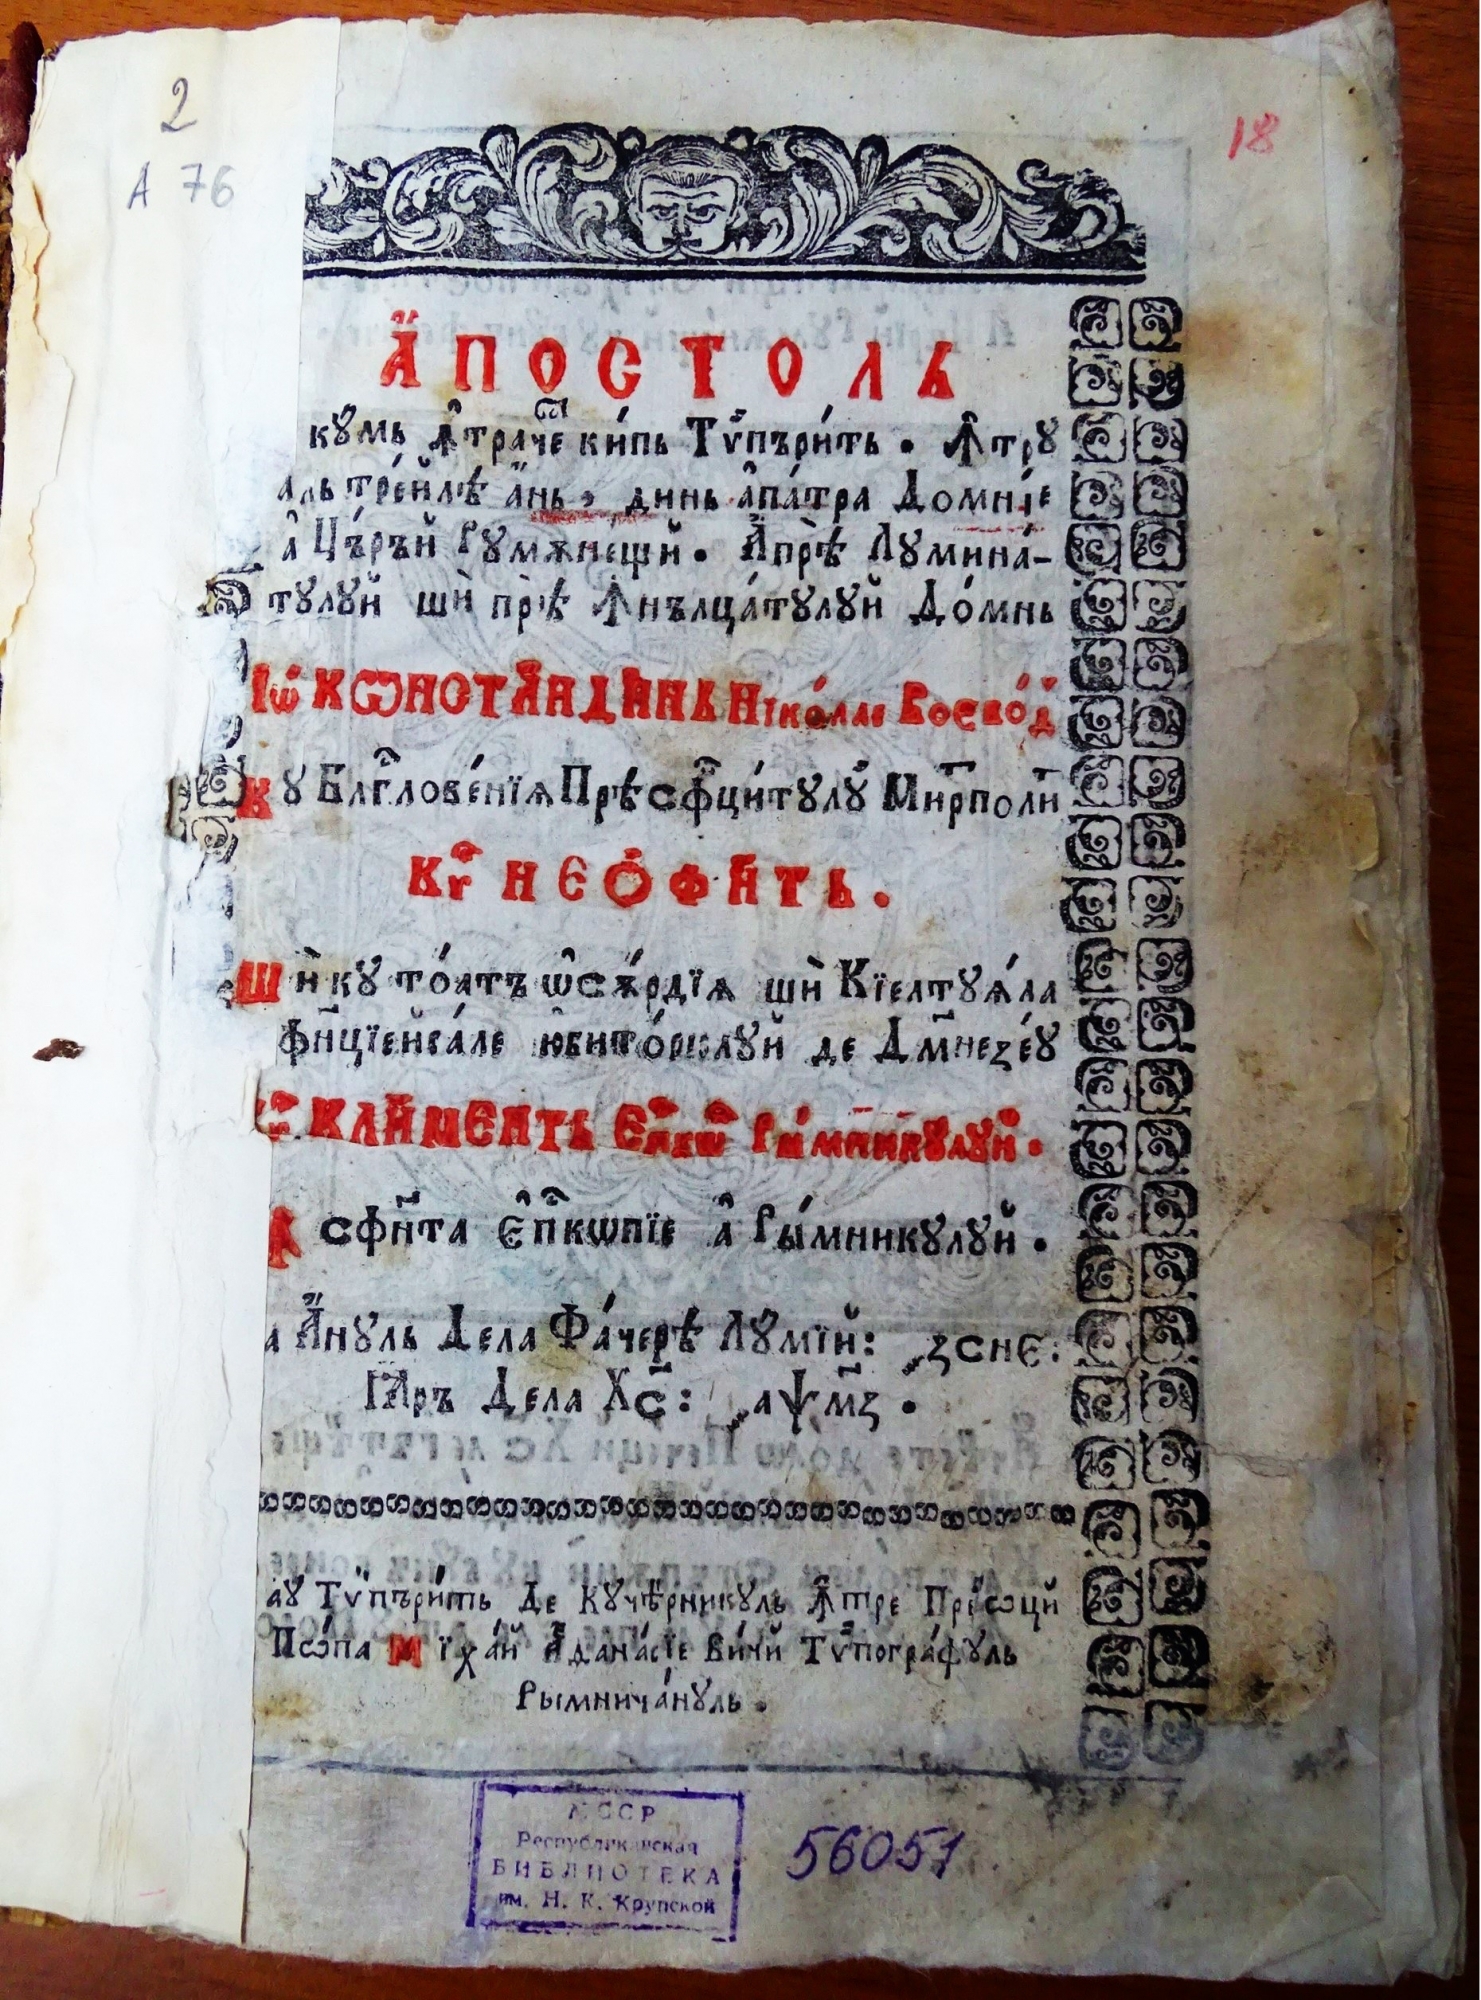 2
А 76
18
А҆́ПОСТОЛЬ
кꙋ́мь а҆траче ки́пь Тѵпъри́ть. Ꙟтрꙋ
аль тре́йлѣ а҆́нь, динь а҆па́тра Домні́е
а҆ Цъ́ръй Рꙋмѫне́щй. А҆прѣ̀ Лꙋмина́-
тꙋлꙋй шѝ прѣ̀ Ꙟнълца́тꙋлꙋй До́мнь
Іѡ́ КѠНСТА́НДИ́НЬ Ніко́лае Воево́д
Кꙋ Блгⷭ҇лове́нїѧ Прѣсфи҃ци́тꙋлꙋ́ Ми́трполи́
Кѵ҆р НЕѠ́ФИ́ТЬ.
Шѝ кꙋ то́атъ ѡ҆сѫ́рдїѧ шѝ Кїелтꙋѧ́ла
фи҃нцїе́йса́ле юби́то́рюлꙋй де Дм҃незе́ꙋ
Кѵ҆р КЛИ́МЕНТЬ Е҆пкⷭ҇ѡ҆п Ры́мникꙋлꙋй.
сфи҃та є҆пⷭ҇кѡпїе а҆ Ры́мникꙋлꙋй.
а А҆́нꙋль Дела Фа́черѣ Лꙋ́мїй: ҂зсне:
ІАръ Дела Хс҃: ҂аѱм҃з.
аꙋ Тѵпъри́ть Де Кꙋче́рникꙋль ꙟ҆тре Прео́ци
По́па Мїха́й А҆дана́сїе Ви́чй Тѵпогра́фꙋль
Рымнича́нꙋль.
МССР
Республиканская
БИБЛИОТЕКА
им. Н. К. Крупской
56051